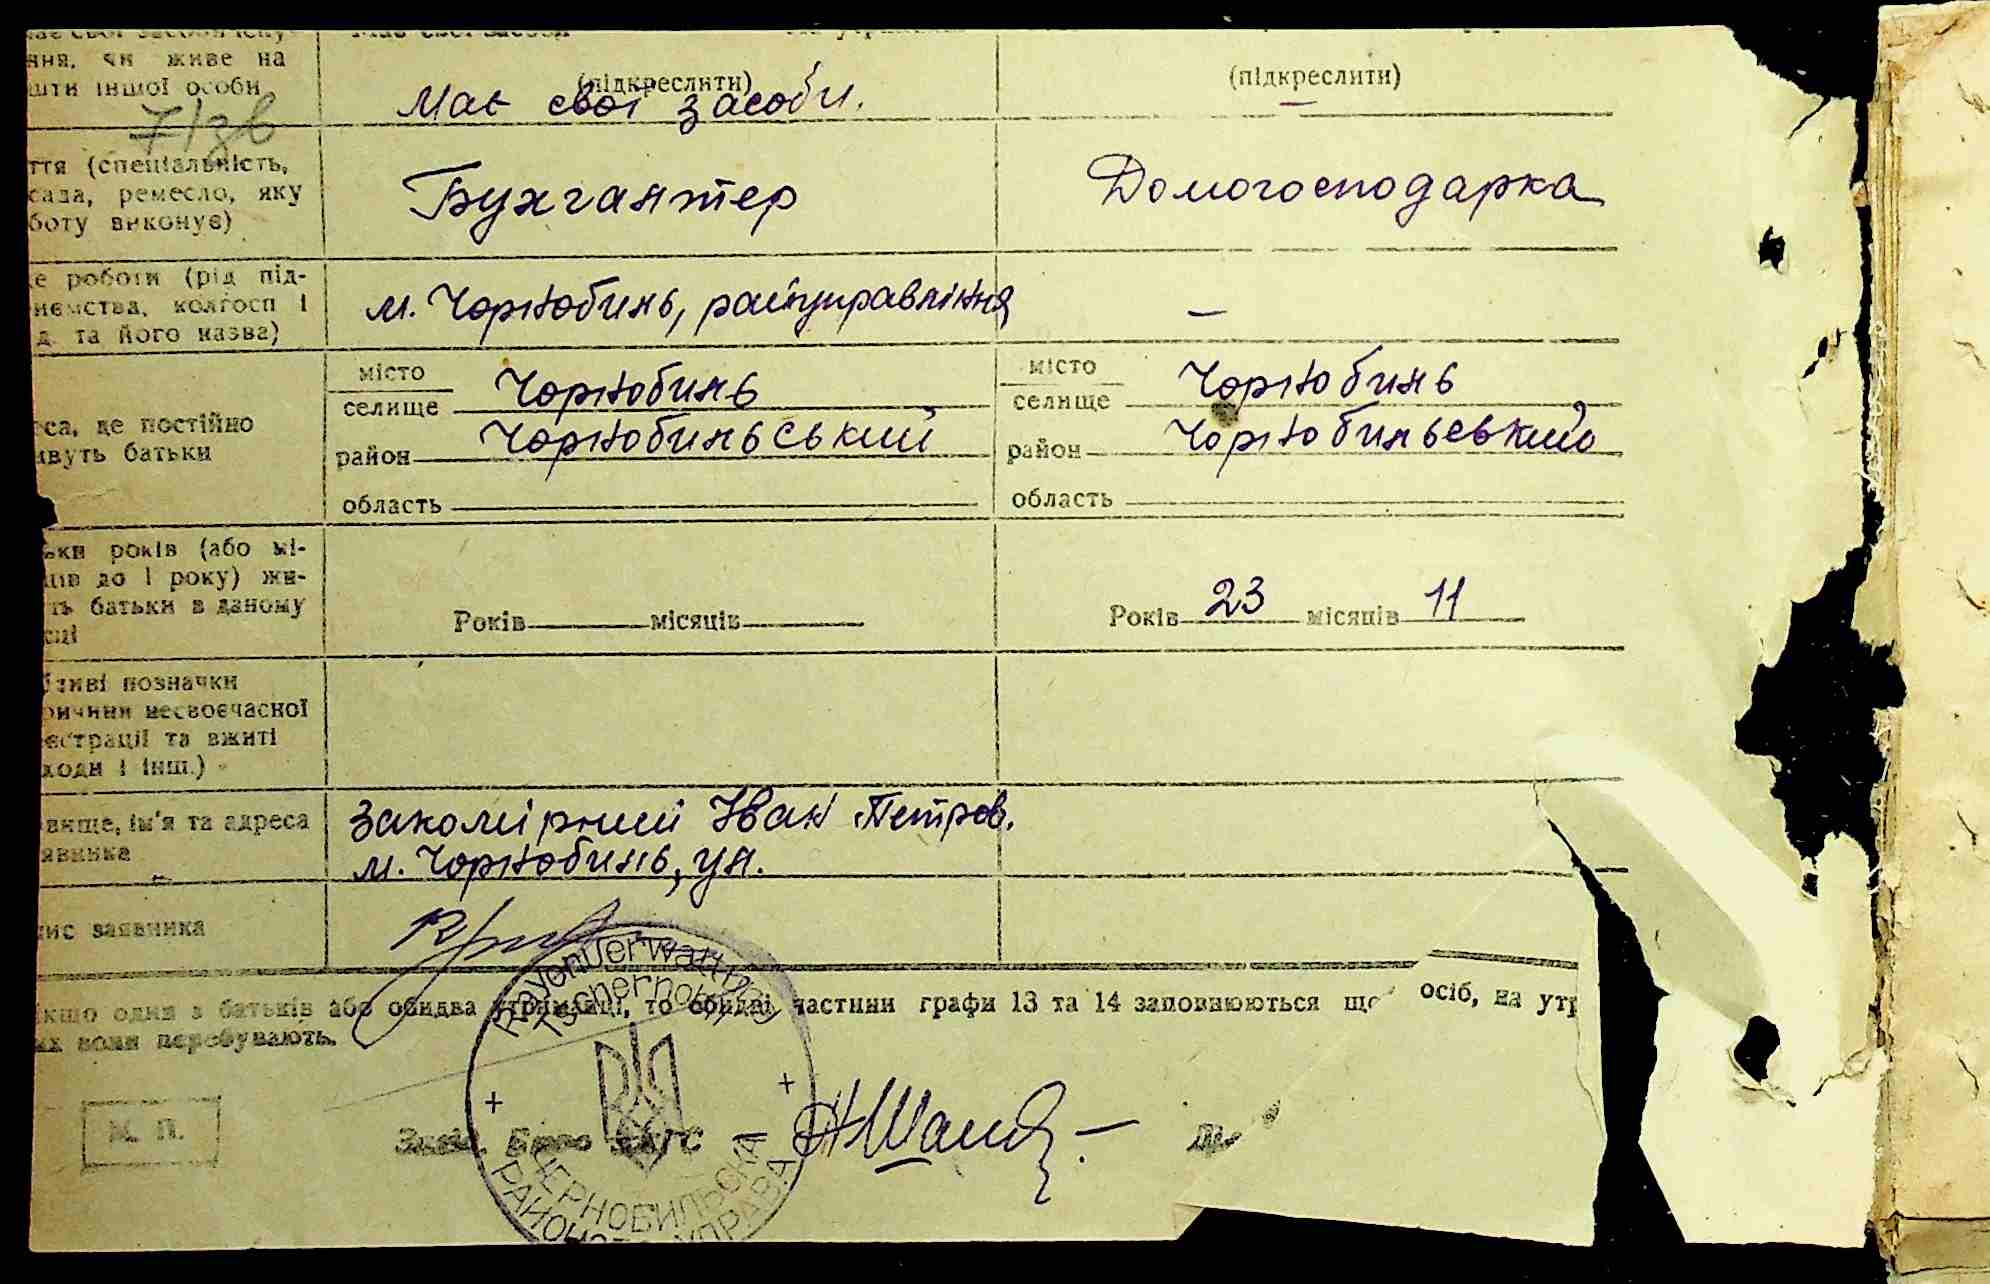 ння, чи живе на
шти іншої особи
(підкреслити)
(підкреслити)
Має свої засоби.
7/зв
ття (спеціальність,
сада, ремесло, яку
боту виконує)
Бухгалтер
Домогосподарка
е роботи (рід під-
иємства, колгосп і
д. та його назва)
м. Чорнобиль, райуправління
—
са, де постійно
ивуть батьки
місто
селище
Чорнобиль
район
Чорнобильський
область
місто
селище
Чорнобиль
район
Чорнобильський
область
ьки років (або мі-
ців до 1 року) жи-
ть батьки в даному
сці
Років місяців
Років 23 місяців 11
ливі позначки
ричини несвоєчасної
єстрації та вжиті
ходи і інш.)
вище, ім'я та адреса
явника
Закомірний Іван Петров.
м. Чорнобиль, ул.
ис заявника
кщо один з батьків або обидва утриманці, то обидві частини графи 13 та 14 заповнюються що осіб, на утр
их вони перебувають.
Rayonverwaltung
Tschernobyl
М. П.
Зав. Бюро ЗАГС
ЧЕРНОБИЛЬСКА
РАЙОНОВА УПРАВА